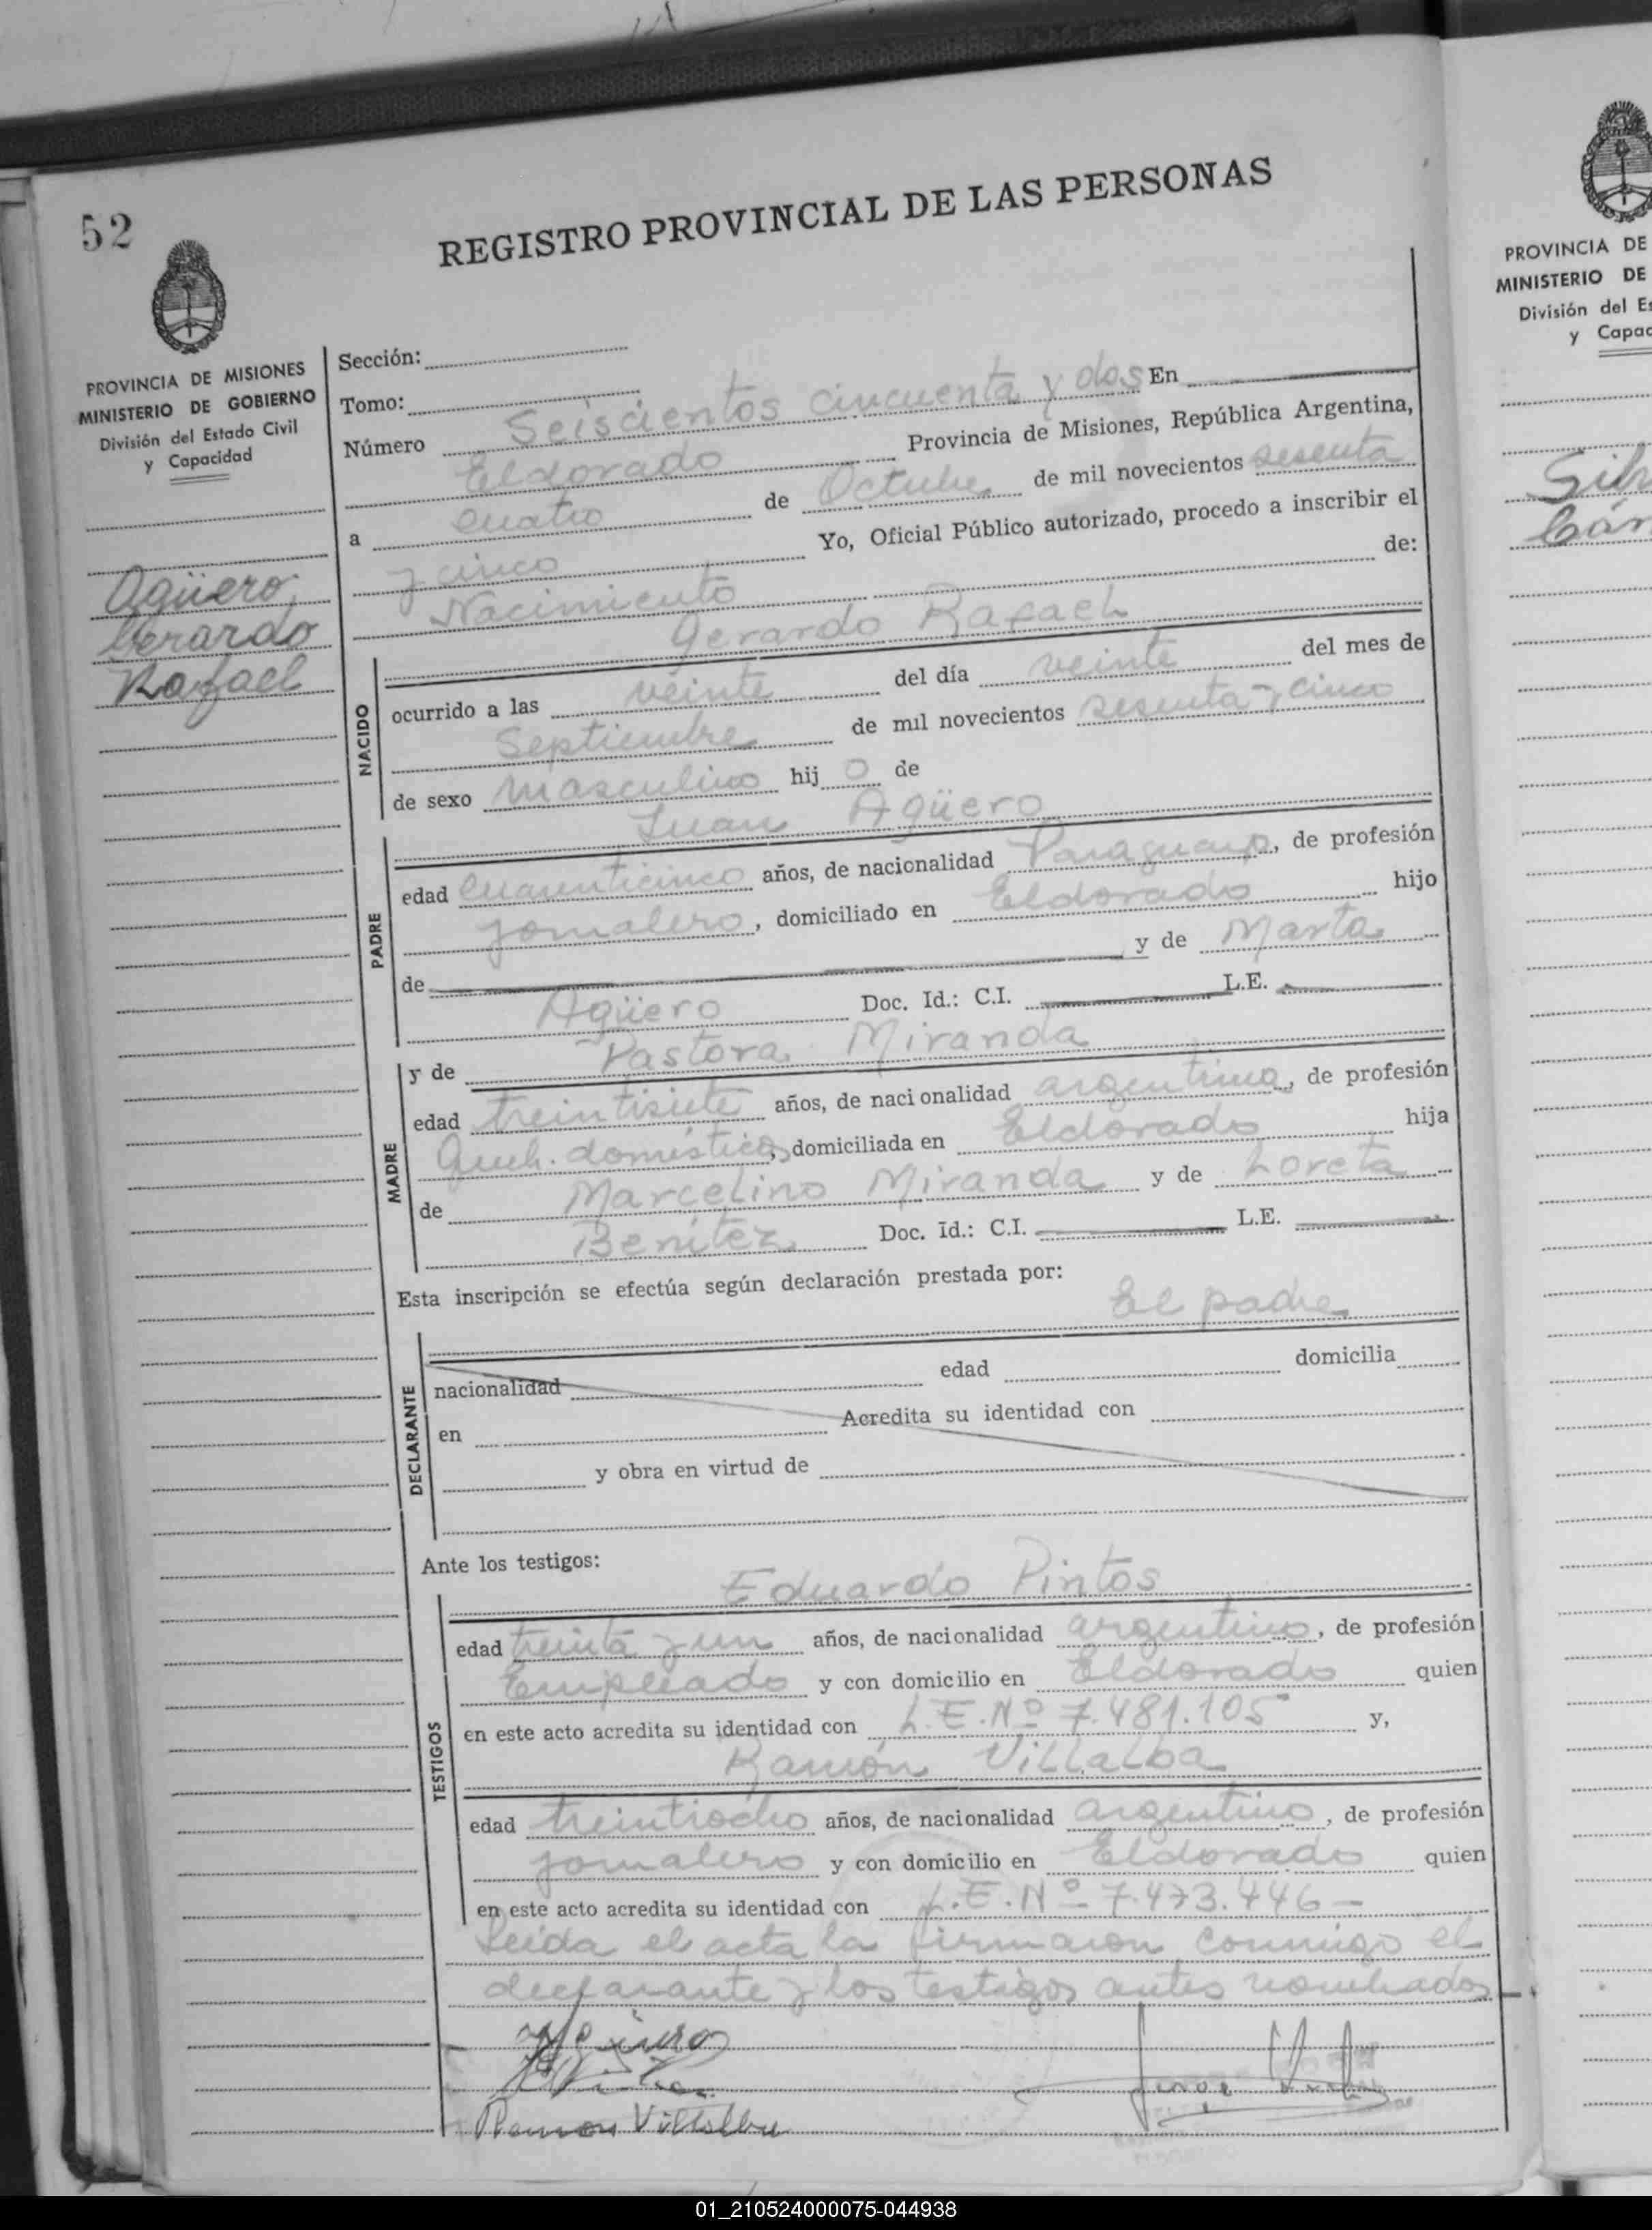 52
REGISTRO PROVINCIAL DE LAS PERSONAS
PROVINCIA DE MISIONES
MINISTERIO DE GOBIERNO
División del Estado Civil
y Capacidad
Agüero
Gerardo
Rafael
Sección:
Tomo:
Número Seiscientos cincuenta y dos En
Eldorado Provincia de Misiones, República Argentina,
a cuatro de Octubre de mil novecientos sesenta
y cinco Yo, Oficial Público autorizado, procedo a inscribir el
Nacimiento de:
Gerardo Rafael
NACIDO
ocurrido a las veinte del día veinte del mes de
Septiembre de mil novecientos sesenta y cinco
de sexo masculino hijo de
Juan Agüero
PADRE
edad cuarenticinco años, de nacionalidad Paraguayo, de profesión
jornalero, domiciliado en Eldorado hijo
de y de Marta
Agüero Doc. Id.: C.I. L.E.
y de Pastora Miranda
MADRE
edad treintisiete años, de nacionalidad argentina, de profesión
domésticos, domiciliada en Eldorado hija
de Marcelino Miranda y de Loreta
Benítez Doc. Id.: C.I. L.E.
Esta inscripción se efectúa según declaración prestada por:
El padre
DECLARANTE
nacionalidad edad domicilia
en Acredita su identidad con
y obra en virtud de
Ante los testigos:
Eduardo Pintos
TESTIGOS
edad treinta y un años, de nacionalidad argentino, de profesión
Empleado y con domicilio en Eldorado quien
en este acto acredita su identidad con L.E.Nº 7.481.105 y,
Ramón Villalba
edad treintiocho años, de nacionalidad argentino, de profesión
jornalero y con domicilio en Eldorado quien
en este acto acredita su identidad con L.E.Nº 7.473.446-
Leida el acta la firmaron conmigo el
declarante y los testigos antes nombrados-
Ramon Villalba
PROVINCIA DE
MINISTERIO DE
División del Es
y Capac
01_210524000075-044938